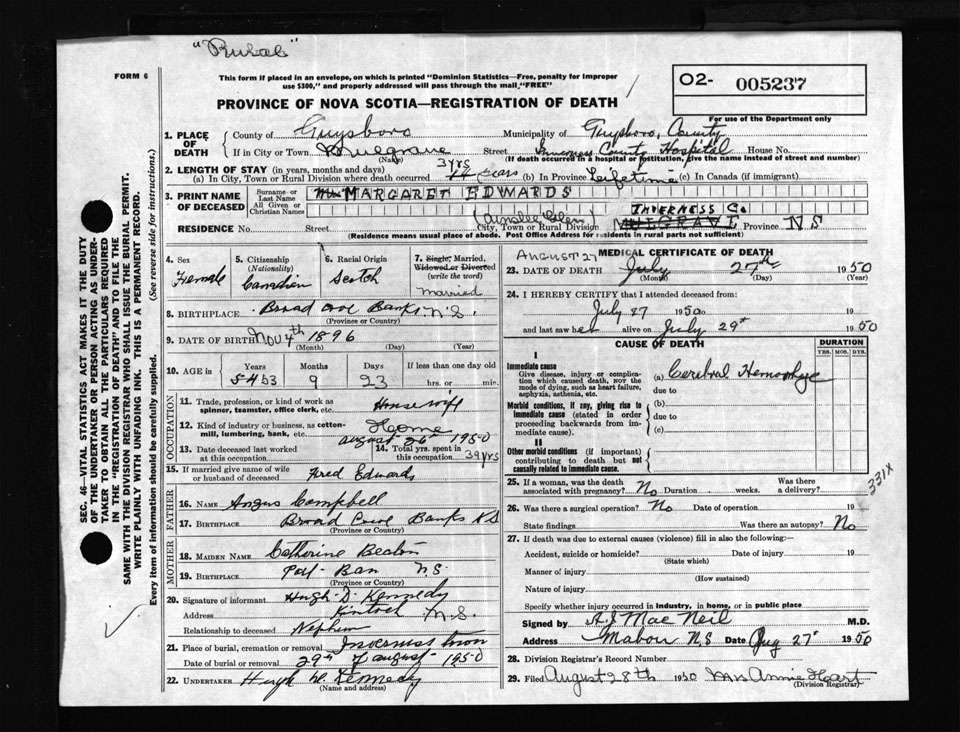 "Rural"
FORM 6
This form if placed in an envelope, on which is printed "Dominion Statistics—Free, penalty for improper
use $300," and properly addressed will pass through the mail "FREE"
02- 005237
For use of the Department only
PROVINCE OF NOVA SCOTIA—REGISTRATION OF DEATH
1. PLACE OF DEATH
County of Guysboro Municipality of Guysboro, County
If in City or Town Mulgrave Street Inverness County Hospital House No.
(Name) (If death occurred in a hospital or institution, give the name instead of street and number)
2. LENGTH OF STAY (in years, months and days) 3 yrs
(a) In City, Town or Rural Division where death occurred 14 years (b) In Province Lifetime (c) In Canada (if immigrant)
3. PRINT NAME OF DECEASED
Surname or Last Name
All Given or Christian Names
MARGARET EDWARDS
(Ainslee Glen) INVERNESS Co.
RESIDENCE No. Street City, Town or Rural Division MULGRAVE Province N S
(Residence means usual place of abode. Post Office Address for residents in rural parts not sufficient)
4. Sex
Female
5. Citizenship
(Nationality)
Canadian
6. Racial Origin
Scotch
7. Single, Married,
Widowed or Divorced
(write the word)
married
8. BIRTHPLACE Broad Cove Banks N.S.
(Province or Country)
9. DATE OF BIRTH Nov 4th 1896
(Month) (Day) (Year)
10. AGE in Years Months Days If less than one day old
54 53 9 23 hrs. or min.
OCCUPATION
11. Trade, profession, or kind of work as
spinner, teamster, office clerk, etc. Housewife
12. Kind of industry or business, as cotton-
mill, lumbering, bank, etc. Home
13. Date deceased last worked
at this occupation August 26th 1950
14. Total yrs. spent in
this occupation 39 yrs
15. If married give name of wife
or husband of deceased Fred Edwards
FATHER
16. NAME Angus Campbell
17. BIRTHPLACE Broad Cove Banks N S
(Province or Country)
MOTHER
18. MAIDEN NAME Catherine Beaton
19. BIRTHPLACE Port Ban N.S.
(Province or Country)
20. Signature of informant Hugh D. Kennedy
Address N.S.
Relationship to deceased Nephew
21. Place of burial, cremation or removal Inverness town
Date of burial or removal 29th of august 1950
22. UNDERTAKER Hugh D. Kennedy
(Name and address)
MEDICAL CERTIFICATE OF DEATH
AUGUST 27
23. DATE OF DEATH July 27th 1950
(Month) (Day) (Year)
24. I HEREBY CERTIFY that I attended deceased from:
July 27 1950
and last saw her alive on July 29th 1950
CAUSE OF DEATH
DURATION
YRS. MOS. DYS.
I
Immediate cause
Give disease, injury or complica-
tion which caused death, not the
mode of dying, such as heart failure,
asphyxia, asthenia, etc.
(a) Cerebral Hemorrhage
due to
Morbid conditions, if any, giving rise to
immediate cause (stated in order
proceeding backwards from im-
mediate cause).
(b)
due to
(c)
II
Other morbid conditions (if important)
contributing to death but not
causally related to immediate cause.
331X
25. If a woman, was the death
associated with pregnancy? No Duration weeks. Was there
a delivery?
26. Was there a surgical operation? No Date of operation 19
State findings Was there an autopsy? No
27. If death was due to external causes (violence) fill in also the following:—
Accident, suicide or homicide? Date of injury 19
(State which)
Manner of injury
(How sustained)
Nature of injury
Specify whether injury occurred in industry, in home, or in public place
Signed by A.J. Mac Neil M.D.
Address Mabou N.S Date Aug 27th 1950
28. Division Registrar's Record Number
29. Filed August 28th 1950 Mrs Annie Hart
(Division Registrar)
SEC. 46—VITAL STATISTICS ACT MAKES IT THE DUTY
OF THE UNDERTAKER OR PERSON ACTING AS UNDER-
TAKER TO OBTAIN ALL THE PARTICULARS REQUIRED
IN THE "REGISTRATION OF DEATH" AND TO FILE THE
SAME WITH THE DIVISION REGISTRAR WHO SHALL ISSUE THE BURIAL PERMIT.
WRITE PLAINLY WITH UNFADING INK. THIS IS A PERMANENT RECORD.
Every item of information should be carefully supplied. (See reverse side for instructions.)